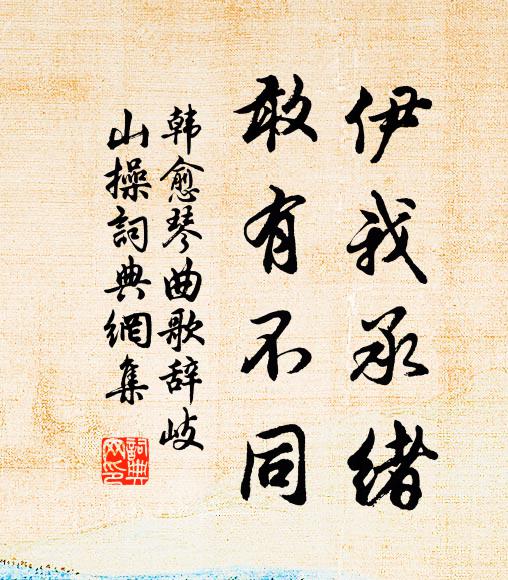 伊我承緒
敢有不同
韩愈琴曲歌辞岐
山操詞典網集
詞典
网印